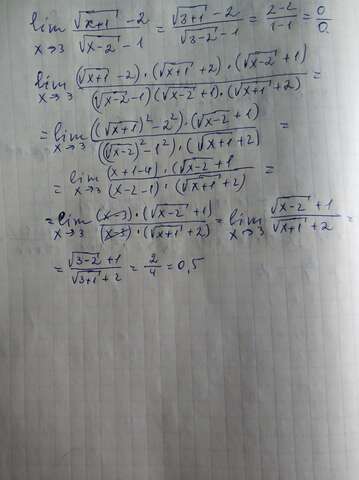 lim x→3 (√(x+1) - 2)/(√(x-2) - 1) = (√(3+1) - 2)/(√(3-2) - 1) = (2-2)/(1-1) = 0/0
lim x→3 ((√(x+1) - 2)·(√(x+1) + 2)·(√(x-2) + 1))/((√(x-2) - 1)(√(x-2) + 1)·(√(x+1) + 2)) =
= lim x→3 (((√(x+1))² - 2²)·(√(x-2) + 1))/(((√(x-2))² - 1²)·(√(x+1) + 2)) =
= lim x→3 ((x+1-4)·(√(x-2) + 1)/((x-2-1)·(√(x+1) + 2)) =
= lim x→3 ((x-3)·(√(x-2) + 1))/((x-3)·(√(x+1) + 2)) = lim x→3 (√(x-2) + 1)/(√(x+1) + 2) =
= (√(3-2) + 1)/(√(3+1) + 2) = 2/4 = 0,5